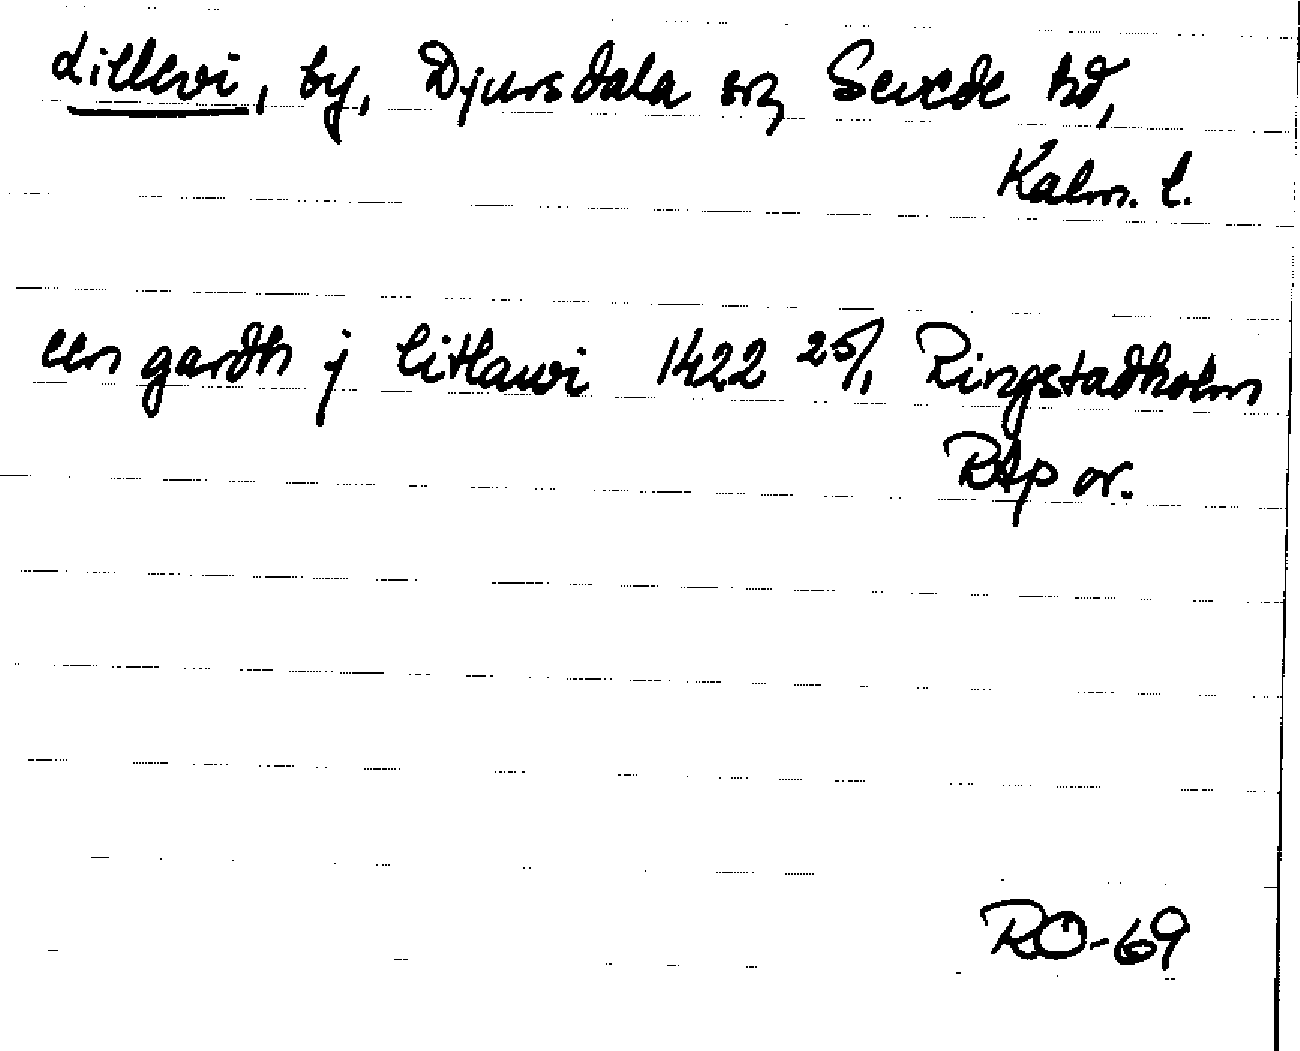 Lillevi, by, Djursdala sn, Sevede hd,
Kalm. l.
een gardh j litlawi 1422 25/1 Ringstadholm
RAp or.
RO-69